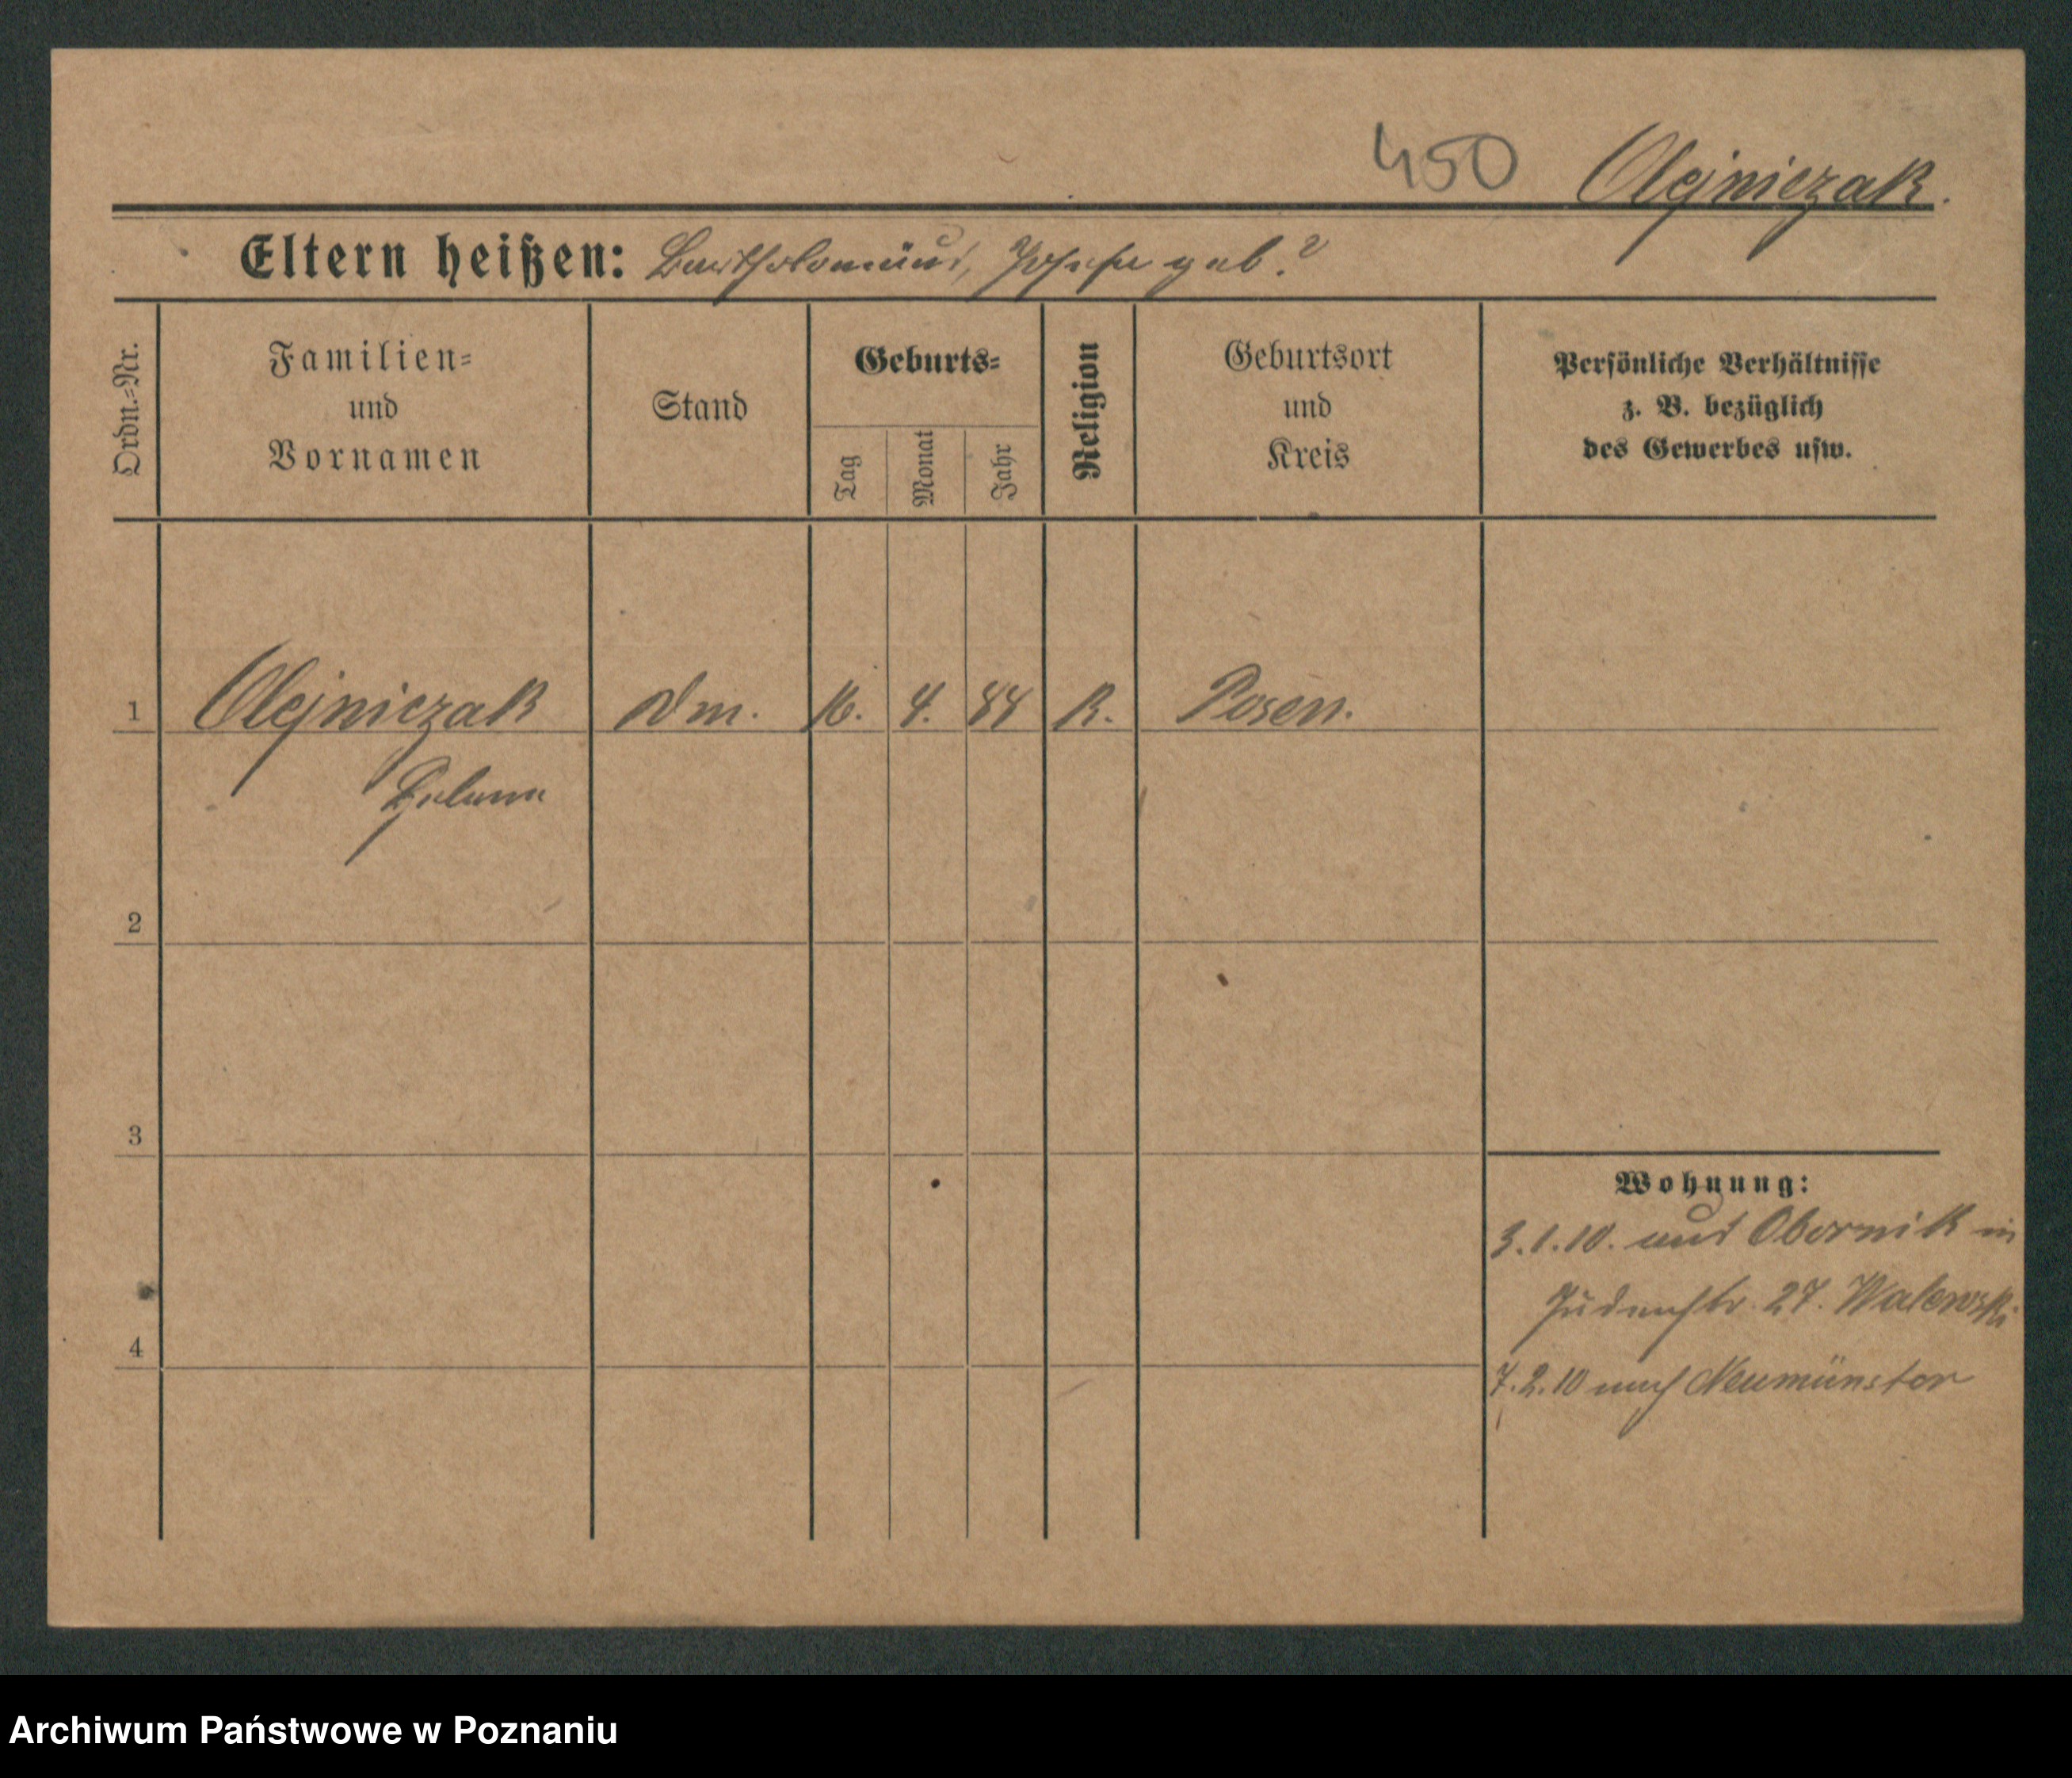 450 Olejniczak.
Eltern heißen: Bartholomäus, Josefa geb. ?
Ordn.=Nr.
Familien=
und
Vornamen
Stand
Geburts=
Tag
Monat
Jahr
Religion
Geburtsort
und
Kreis
Persönliche Verhältnisse
z. B. bezüglich
des Gewerbes usw.
1 Olejniczak Dm. 16. 4. 84 K. Posen.
Helene
2
3
4
Wohnung:
3.1.10. aus Obornik in
Judenstr. 27. Walewski
7.2.10 nach Neumünster
Archiwum Państwowe w Poznaniu